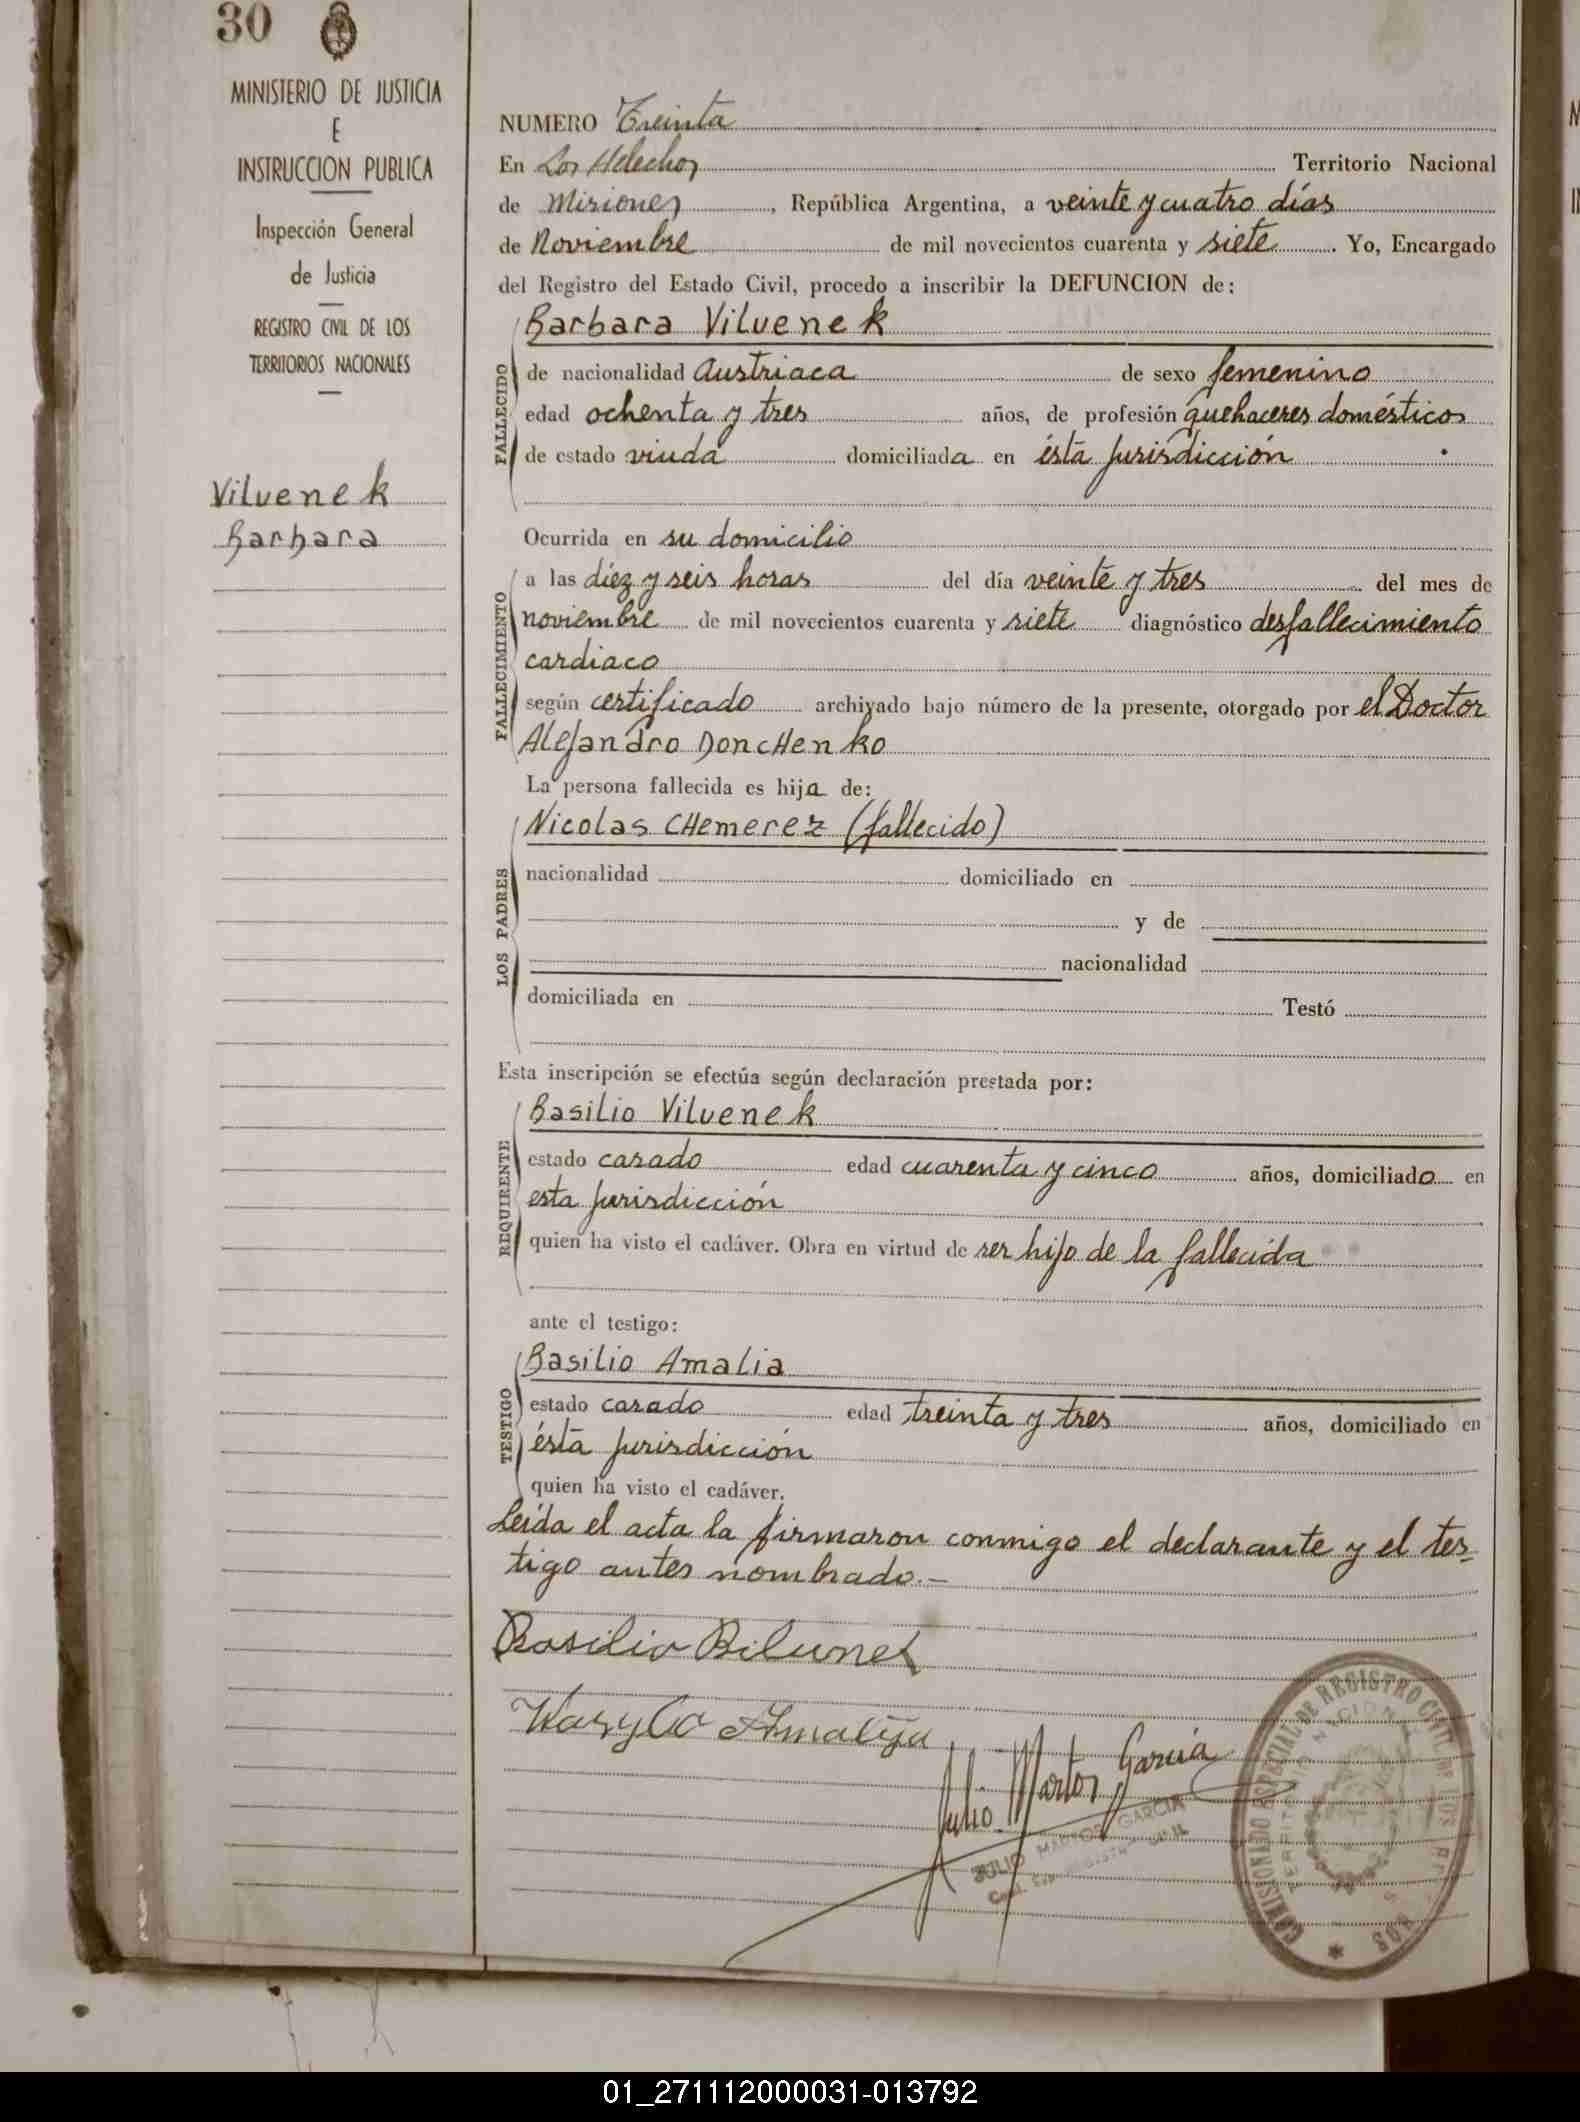 30
MINISTERIO DE JUSTICIA
E
INSTRUCCION PUBLICA
Inspección General
de Justicia
REGISTRO CIVIL DE LOS
TERRITORIOS NACIONALES
Viluenek
Barbara
NUMERO Treinta
En Los Helechos Territorio Nacional
de Misiones, República Argentina, a veinte y cuatro días
de Noviembre de mil novecientos cuarenta y siete. Yo, Encargado
del Registro del Estado Civil, procedo a inscribir la DEFUNCION de:
FALLECIDO
Barbara Viluenek
de nacionalidad austriaca de sexo femenino
edad ochenta y tres años, de profesión quehaceres domésticos
de estado viuda domiciliada en ésta jurisdicción
Ocurrida en su domicilio
FALLECIMIENTO
a las diez y seis horas del día veinte y tres del mes de
noviembre de mil novecientos cuarenta y siete diagnóstico desfallecimiento
cardiaco
según certificado archivado bajo número de la presente, otorgado por el Doctor
Alejandro DoncHenko
La persona fallecida es hija de:
LOS PADRES
Nicolas CHemerez (fallecido)
nacionalidad domiciliado en
y de
nacionalidad
domiciliada en Testó
Esta inscripción se efectúa según declaración prestada por:
REQUIRENTE
Basilio Viluenek
estado casado edad cuarenta y cinco años, domiciliado en
esta jurisdicción
quien ha visto el cadáver. Obra en virtud de ser hijo de la fallecida
ante el testigo:
TESTIGO
Basilio Amalia
estado casado edad treinta y tres años, domiciliado en
ésta jurisdicción
quien ha visto el cadáver.
Leída el acta la firmaron conmigo el declarante y el tes-
tigo antes nombrado.-
Basilio Bilunek
Wasylo Amalija
Julio Martos García
JULIO MARTOS GARCIA
COMISIONADO ESPECIAL DE REGISTRO CIVIL DE LOS
01_271112000031-013792